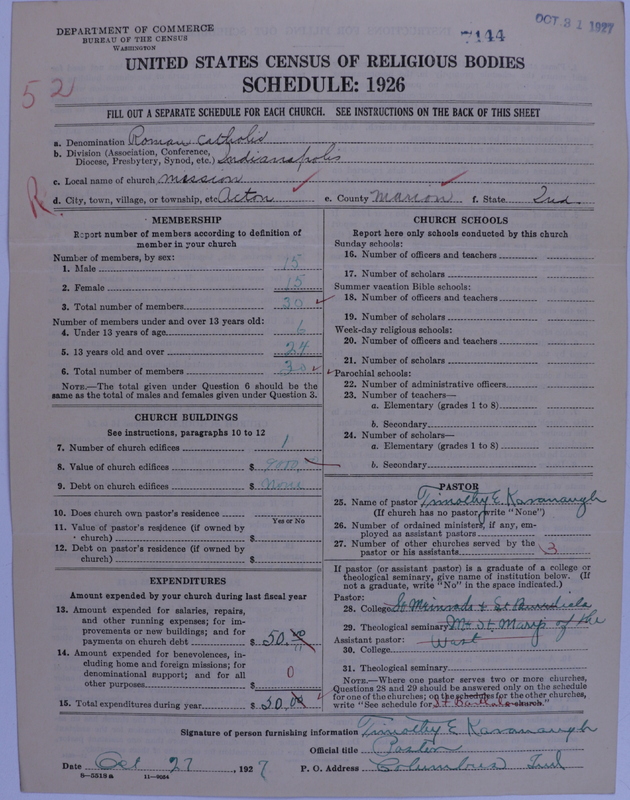 DEPARTMENT OF COMMERCE
BUREAU OF THE CENSUS
WASHINGTON
7144
OCT 31 1927
UNITED STATES CENSUS OF RELIGIOUS BODIES
SCHEDULE: 1926
52
FILL OUT A SEPARATE SCHEDULE FOR EACH CHURCH. SEE INSTRUCTIONS ON THE BACK OF THIS SHEET
a. Denomination Roman Catholic
b. Division (Association, Conference,
Diocese, Presbytery, Synod, etc.) Indianapolis
c. Local name of church mission
R.
d. City, town, village, or township, etc. Acton e. County Marion f. State Ind
MEMBERSHIP
Report number of members according to definition of
member in your church
Number of members, by sex:
1. Male 15
2. Female 15
3. Total number of members 30
Number of members under and over 13 years old:
4. Under 13 years of age 6
5. 13 years old and over 24
6. Total number of members 30
NOTE.—The total given under Question 6 should be
same as the total of males and females given under Question 3.
CHURCH BUILDINGS
See instructions, paragraphs 10 to 12
7. Number of church edifices 1
8. Value of church edifices $
9. Debt on church edifices $ None
10. Does church own pastor's residence
Yes or No
11. Value of pastor's residence (if owned by
church) $
12. Debt on pastor's residence (if owned by
church) $
EXPENDITURES
Amount expended by your church during last fiscal year
13. Amount expended for salaries, repairs,
and other running expenses; for im-
provements or new buildings; and for
payments on church debt $ 50.00
14. Amount expended for benevolences, in-
cluding home and foreign missions; for
denominational support; and for all
other purposes $ 0
15. Total expenditures during year $ 50.00
CHURCH SCHOOLS
Report here only schools conducted by this church
Sunday schools:
16. Number of officers and teachers
17. Number of scholars
Summer vacation Bible schools:
18. Number of officers and teachers
19. Number of scholars
Week-day religious schools:
20. Number of officers and teachers
21. Number of scholars
Parochial schools:
22. Number of administrative officers
23. Number of teachers—
a. Elementary (grades 1 to 8)
b. Secondary
24. Number of scholars—
a. Elementary (grades 1 to 8)
b. Secondary
PASTOR
25. Name of pastor Timothy E. Kavanaugh
(If church has no pastor, write "None")
26. Number of ordained ministers, if any, em-
ployed as assistant pastors
27. Number of other churches served by the
pastor or his assistants 3
If pastor (or assistant pastor) is a graduate of a college or
theological seminary, give name of institution below. (If
not a graduate, write "No" in the space indicated.)
Pastor:
28. College St Meinrads & St
29. Theological seminary Mt. St. Marys of the
Assistant pastor: West
30. College
31. Theological seminary
NOTE.—Where one pastor serves two or more churches,
Questions 28 and 29 should be answered only on the schedule
for one of the churches; on the schedules for the other churches,
write "See schedule for St Barthols church."
Signature of person furnishing information Timothy E Kavanaugh
Official title Pastor
Date Oct 27, 1927 P. O. Address Columbus Ind
8—5518a 11—9034